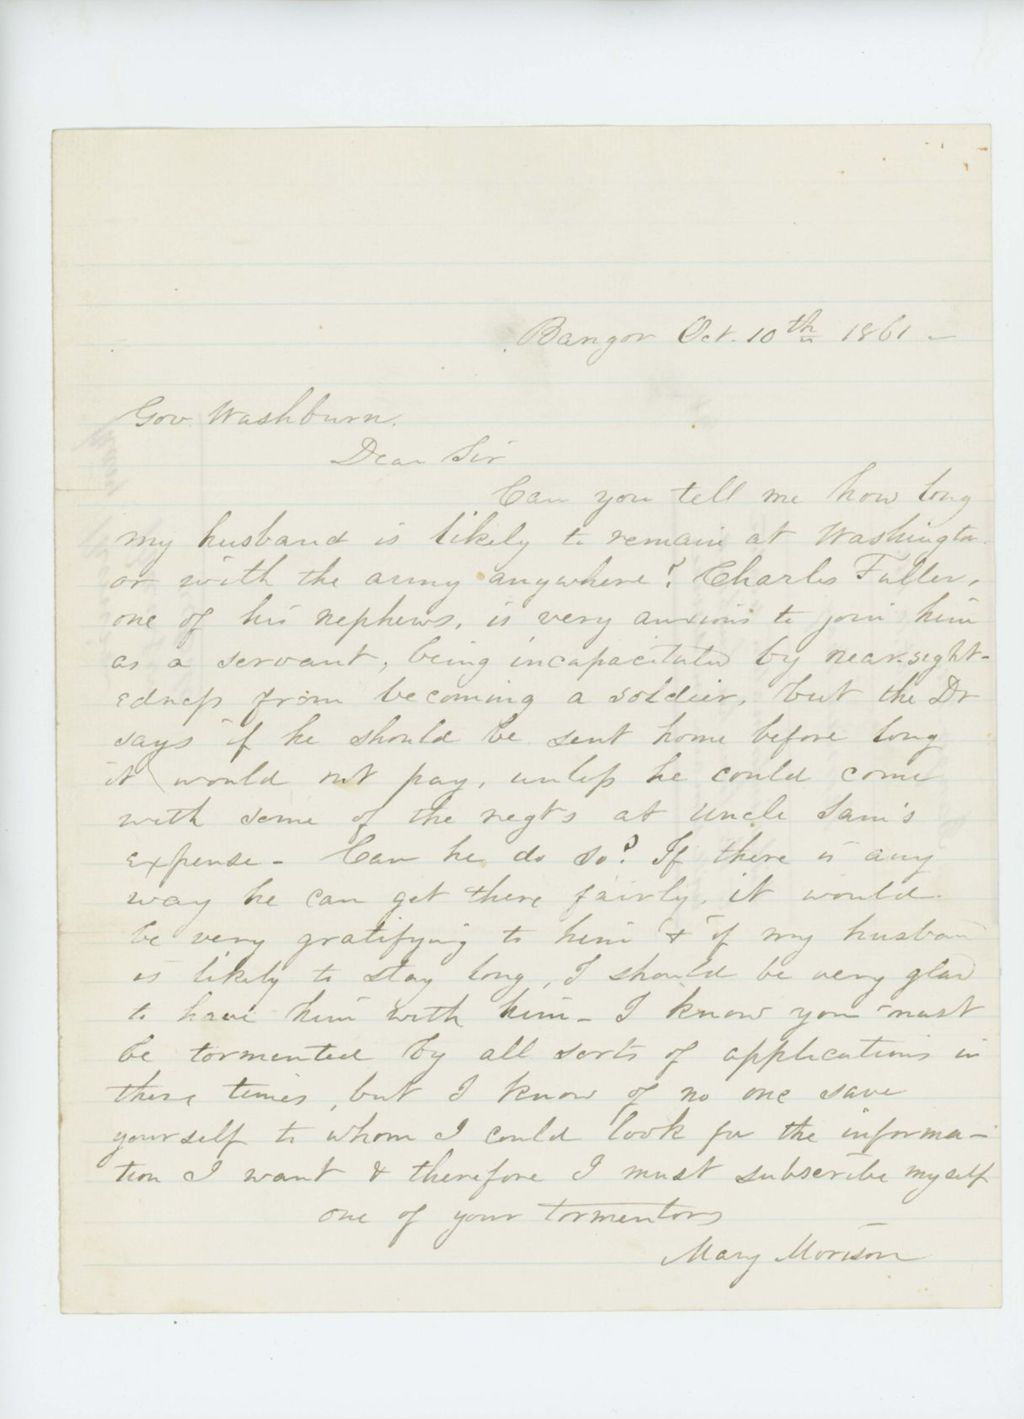 Bangor Oct. 10th 1861 -
Gov. Washburn.
Dear Sir
Can you tell me how long
my husband is likely to remain at Washington
or with the army anywhere? Charles Fuller,
one of his nephews, is very anxious to join him
as a servant, being incapacitated by near-sight-
edness from becoming a soldier, but the Dr
says if he should be sent home before long
it would not pay, unless he could come
with some of the regts at Uncle Sam's
expense - Can he do so? If there is any
way he can get there fairly, it would
be very gratifying to him & if my husband
is likely to stay long, I should be very glad
to have him with him - I know you must
be tormented by all sorts of applications in
these times, but I know of no one save
yourself to whom I could look for the informa-
tion I want & therefore I must subscribe myself
one of your tormentors
Mary Morison